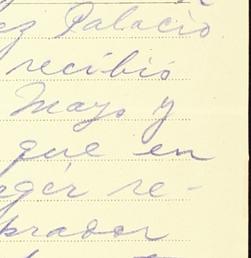 ez Palacio
recibió
Mayo y
que en
eger re-
brador